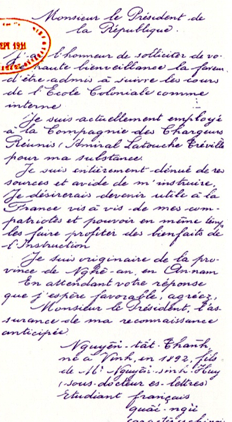 Monsieur le Président de
la République.
SEPT 1911
l'honneur de solliciter de vo-
haute bienveillance la faveur
d'être admis à suivre les cours
de l'Ecole Coloniale comme
interne
Je suis actuellement employé
à la Compagnie des Chargeurs
Réunis, Amiral Latouche Tréville
pour ma substance
Je suis entièrement dénué de res
sources et avide de m'instruire.
Je désirerais devenir utile à la
France vis à vis de mes com-
patriotes et pouvoir en même temps
les faire profiter des bienfaits de
l'Instruction
Je suis originaire de la pro-
vince de Nghê-an, en Annam
En attendant votre réponse
que j'espère favorable, agréez,
Monsieur le Président, l'as
surance de ma reconnaissance
anticipée
Nguyên-tât-Thanh,
né à Vinh, en 1892, fils
de Mr Nguyên-sinh-Huy
(sous-docteur ès-lettres)
Etudiant français
quôc-ngu